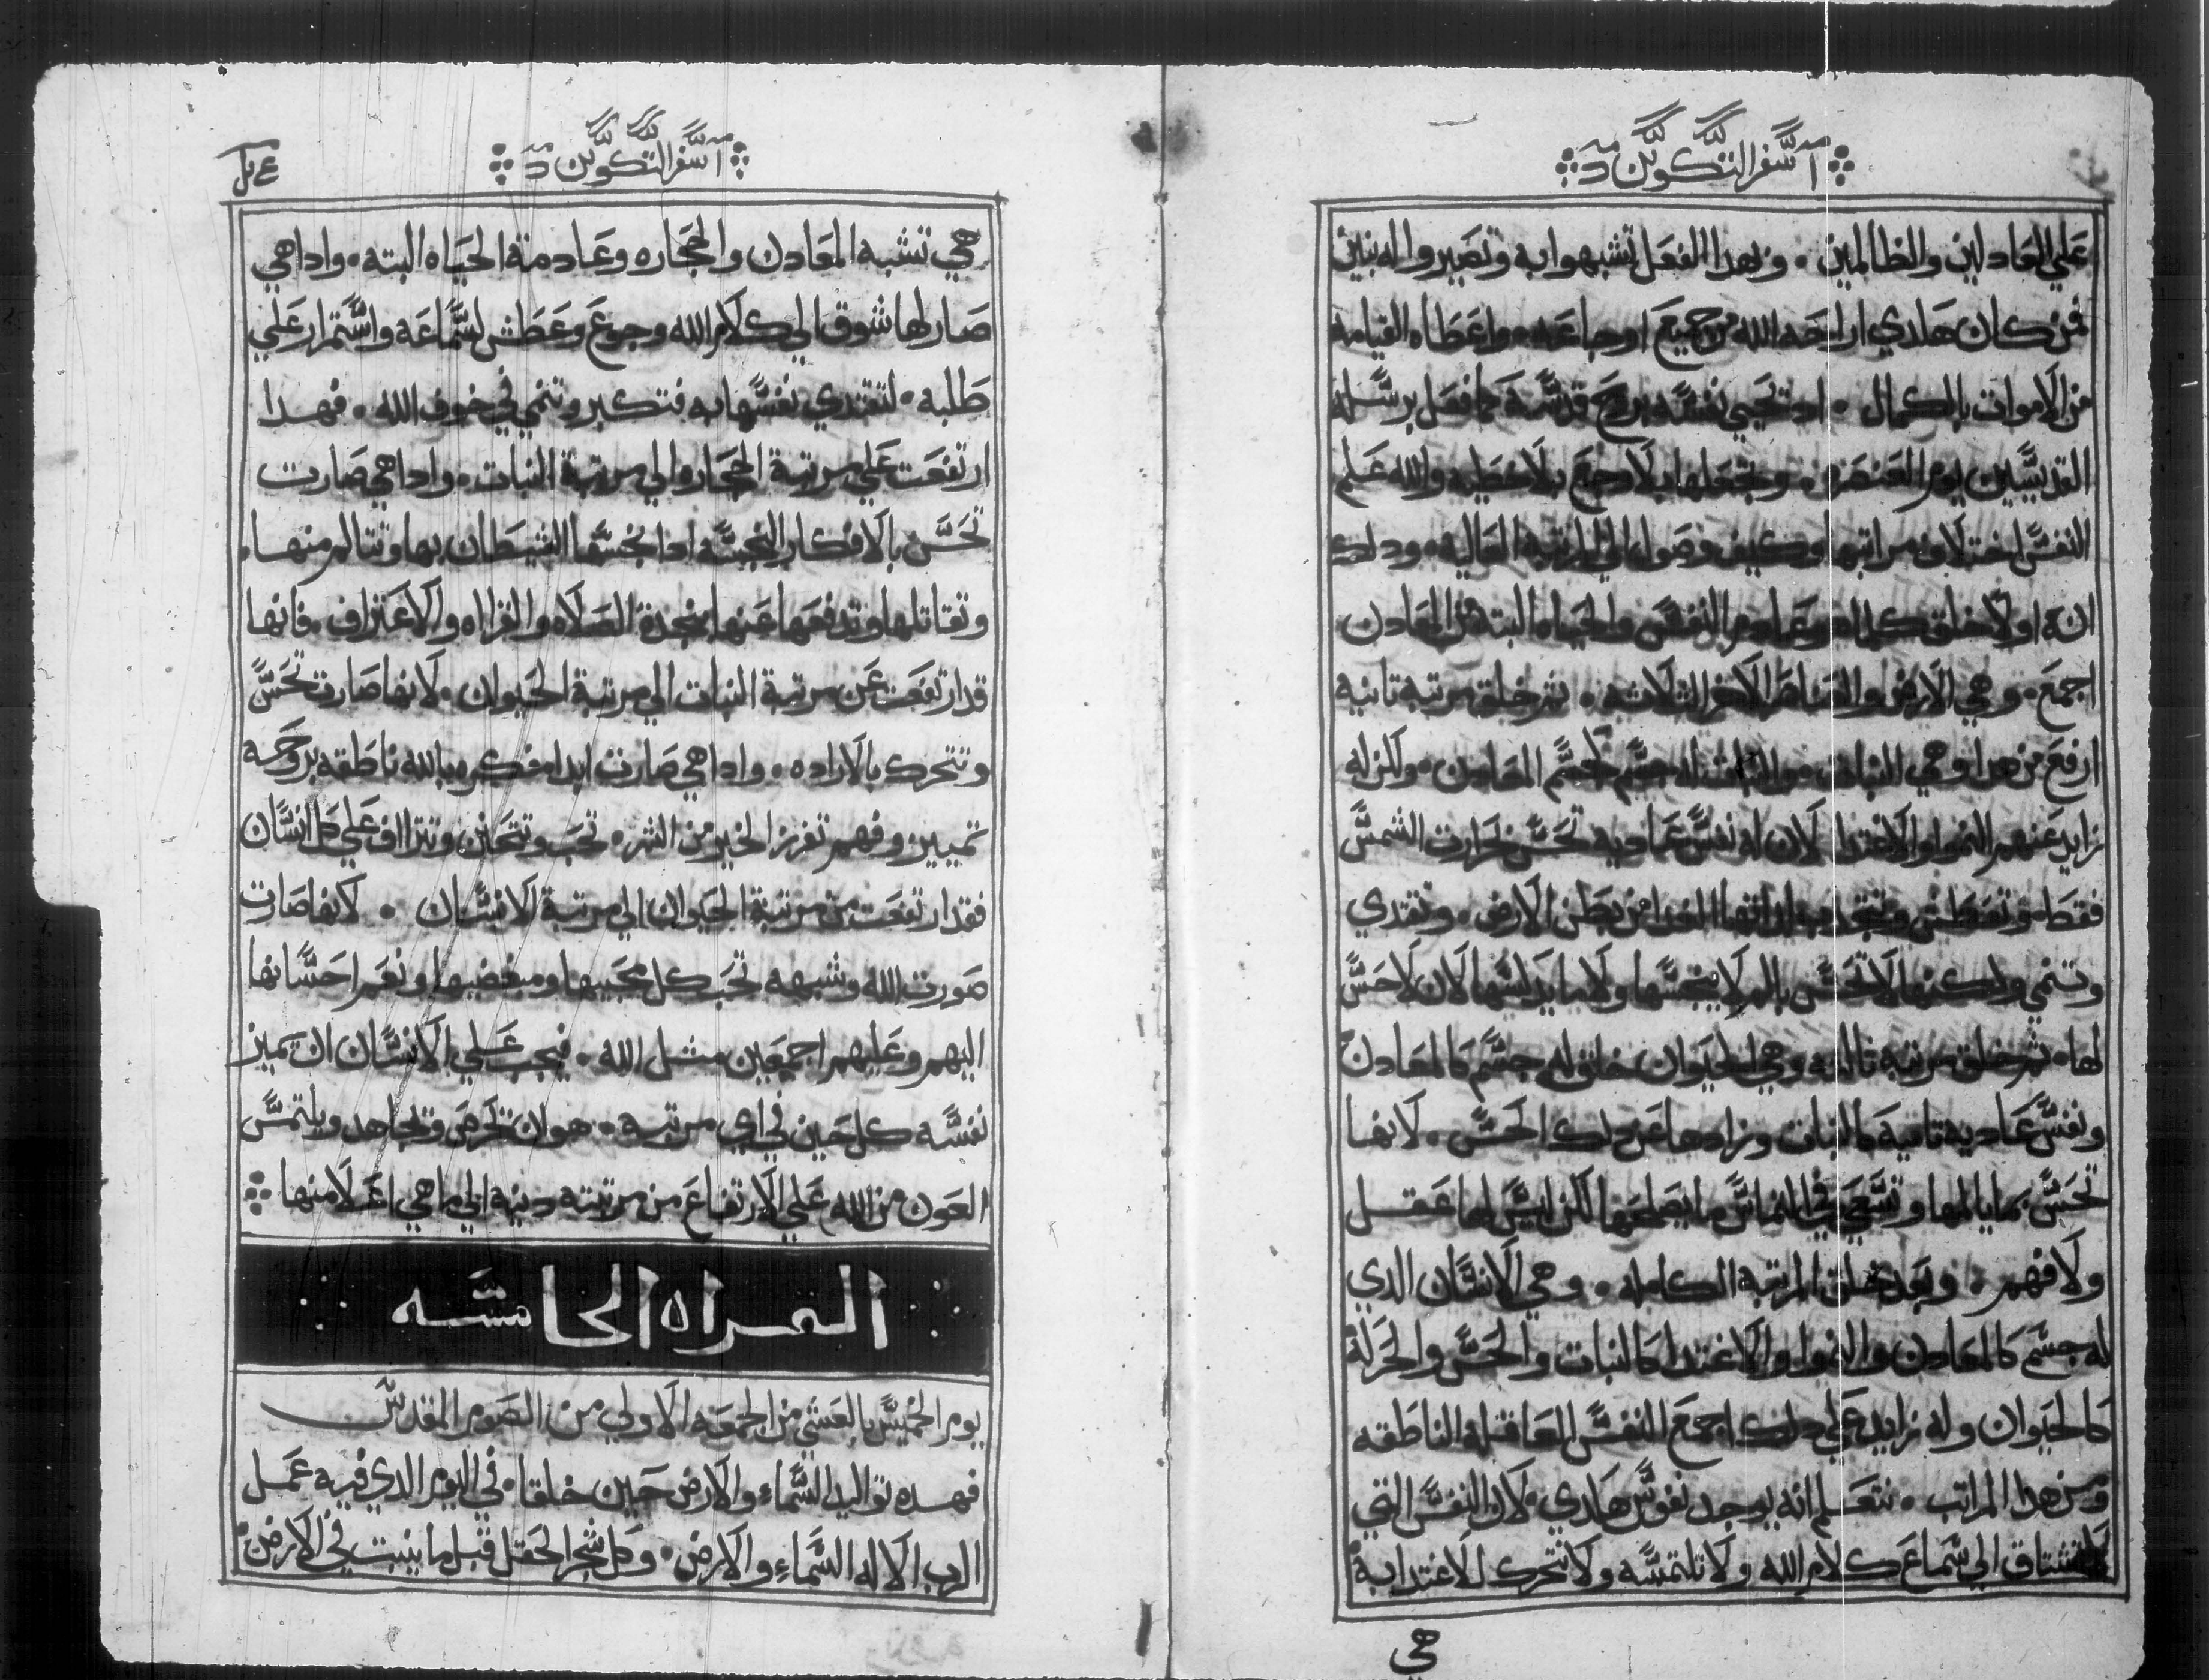 سفر التكوين
علي العادلين والظالمين ۰ وبهدا الفعل تشبهوا به وتصيروا له بنين
فمن كان هكدي اراحه الله من جميع اوجاعه ۰ واعطاه القيامه
من الاموات بالكمال ۰ اد تحيي نفسه بروح قدسه كما فعل برسله
القديسين يوم العنصره ۰ وتجعلها بلا وجع بلا خطيه والله علم
النفس اختلاف مراتبها وكيف وصولها الي المرتبه العاليه ۰ ودلك
انه اولا خلق كلما هو عادم النفس والحياه البته من المعادن
اجمع ۰ وهي الارض والعناصر الاخر الثلاثه ۰ ثم خلق مرتبه تانيه
ارفع من هدا وهي النبات ۰ والنبات له جسم كجسم المعادن ۰ ولكن له
زايد عنهم النموا والاغتدا لان له نفس عاديه تحس بحرارت الشمس
فقط ۰ وتعطش وتجدب الغدا من بطن الارض ۰ وتغتدي
وتنمي ولكنها لا تحس بالم لا ينجسها ولا ما يدلسها لان لا حس
لها ۰ ثم خلق مرتبه تالته وهي الحيوان خلق له جسم كالمعادن
ونفس عاديه ناميه كالنبات وزادها عن دلك الحس ۰ لانها
تحس بما يالمها وتسعي في التماس ما يصلحها لكن ليس لها عقل
ولا فهم ۰ وبعد خلق المرتبه الكامله ۰ وهي الانسان الدي
له جسم كالمعادن والنموا والاغتدا كالنبات والحس والحركة
كالحيوان وله زايد علي دلك اجمع النفس العاقلة الناطقه
ومن هدا المراتب ۰ نتعلم انه يوجد نفوس هكدي ۰ لان النفس التي
لا تشتاق الي سماع كلام الله ولا تلتمسه ولا تتحرك للاغتدا به
هي
سفر التكوين
هي تشبه المعادن والحجاره وعادمة الحياه البته ۰ وادا هي
صار لها شوق الي كلام الله وجوع وعطش لسماعه واستمرار علي
طلبه ۰ لتغتدي نفسها به فتكبر وتنمي في خوف الله ۰ فهدا
ارتفعت علي مرتبة الحجاره الي مرتبة النبات ۰ وادا هي صارت
تحس بالافكار النجسه ادا نخسها الشيطان بها وتتالم منها
وتقاتلها وتدفعها عنها بنجدة الصلاه والقراه والاعتراف ۰ فانها
قد ارتفعت عن مرتبة النبات الي مرتبة الحيوان ۰ لانها صارت تحس
وتتحرك بالاراده ۰ وادا هي صارت ابدا مفكره بالله ناطقه بروحه
تمييز وفهم تفرز الخير من الشر ۰ تحب وتتحانن وتتراف علي كل انسان
فقد ارتفعت من مرتبة الحيوان الي مرتبة الانسان ۰ لانها صارت
صورت الله وشبهه تحب كل محبيها ومبغضيها ونعم احسانها
اليهم وعليهم اجمعين مثل الله ۰ فيجب علي الانسان ان يميز
نفسه كل حين في اي مرتبه ۰ هو لان تحرص وتجاهد ويلتمس
العون من الله علي الارتفاع من مرتبته دنيه الي ما هي اعلا منها
القراه الخامسه
يوم الخميس بالعشي من الجمعه الاولي من الصوم المقدس
فهده تواليد السماء والارض حين خلقا ۰ في اليوم الدي فيه عمل
الرب الاله السماء والارض ۰ وكل شجر الحقل قبل ما ينبت في الارض